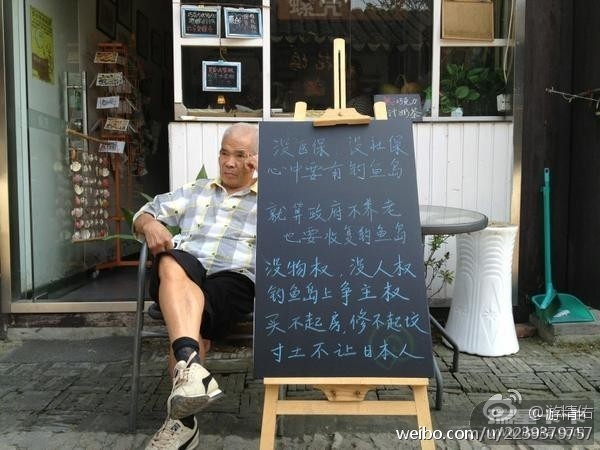 没医保、没社保
心中要有钓鱼岛
就算政府不养老
也要收复钓鱼岛
没物权、没人权
钓鱼岛上争主权
买不起房,修不起坟
寸土不让日本人
@游精佑
weibo.com/u/2239379757